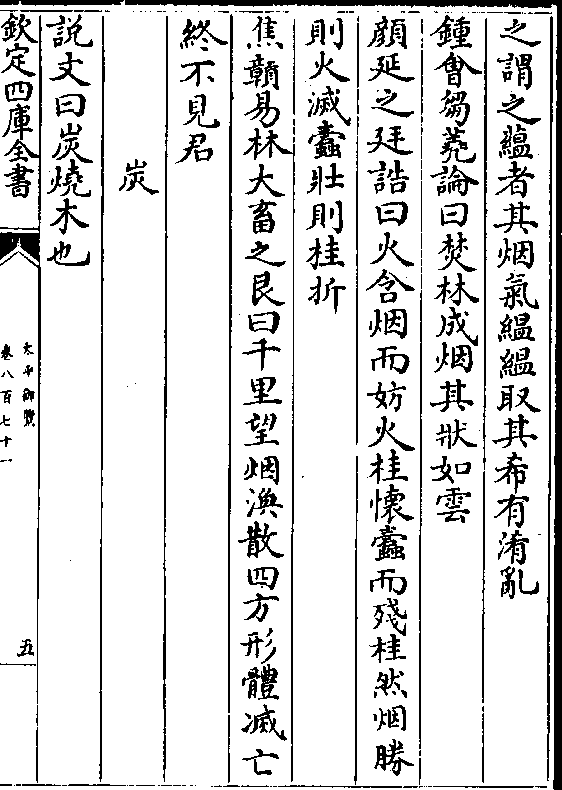 之謂之蘊者其烟氣緼緼取其希有淆亂
鍾㑹芻蕘論曰焚林成烟其狀如雲
顔延之廷誥曰火含烟而妨火桂懷蠧而殘桂然烟勝
則火滅蠧壯則桂折
焦贛易林大畜之艮曰千里望烟渙散四方形體滅亡
終不見君
炭
説文曰炭燒木也
欽定四庫全書
太平御覽
卷八百七十一
五